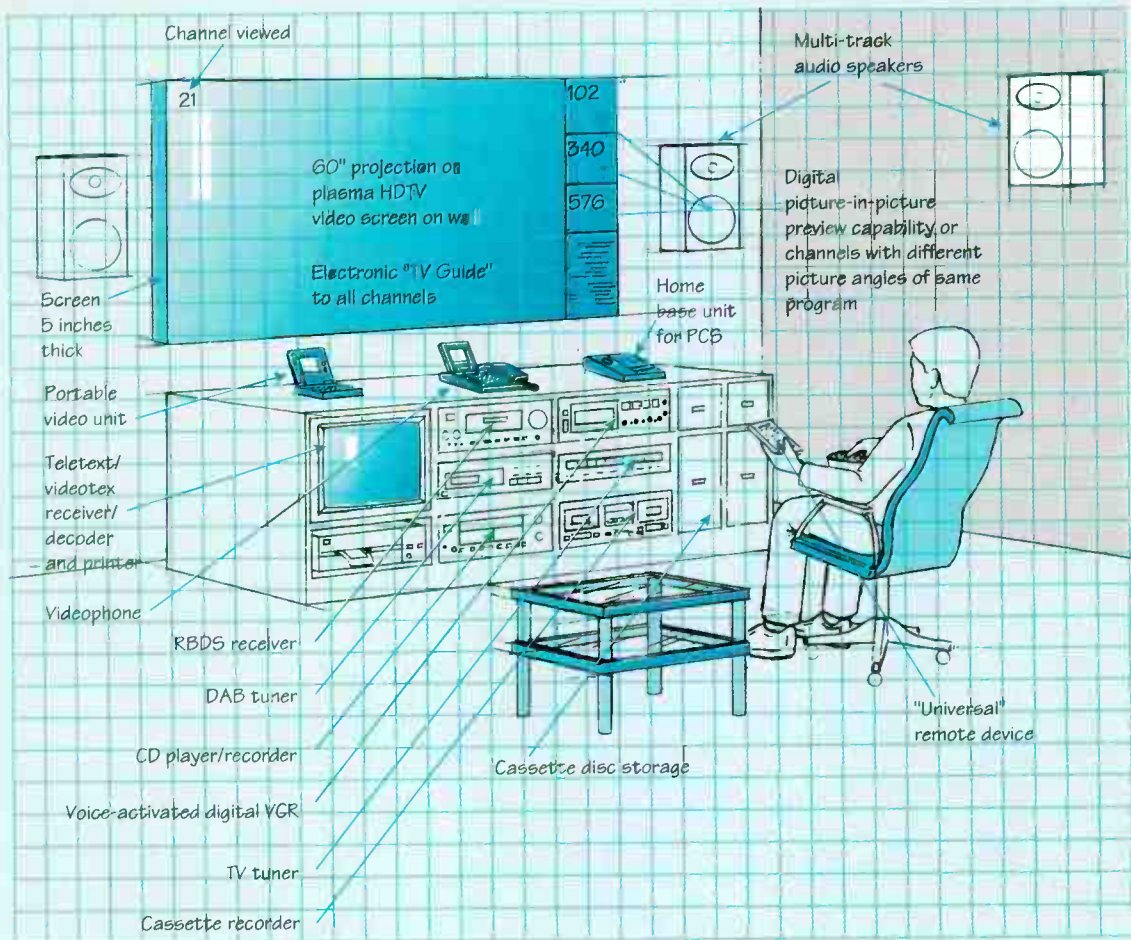 Channel viewed
Multi-track
audio speakers
21
102
340
576
60" projection or
plasma HDTV
video screen on wall
Electronic "TV Guide"
to all channels
Digital
picture-in-picture
preview capability or
channels with different
picture angles of same
program
Screen
5 inches
thick
Home
base unit
for PCS
Portable
video unit
Teletext/
videotex
receiver/
decoder
and printer
Videophone
RBDS receiver
DAB tuner
CD player/recorder
Voice-activated digital VCR
TV tuner
Cassette recorder
Cassette disc storage
"Universal"
remote device